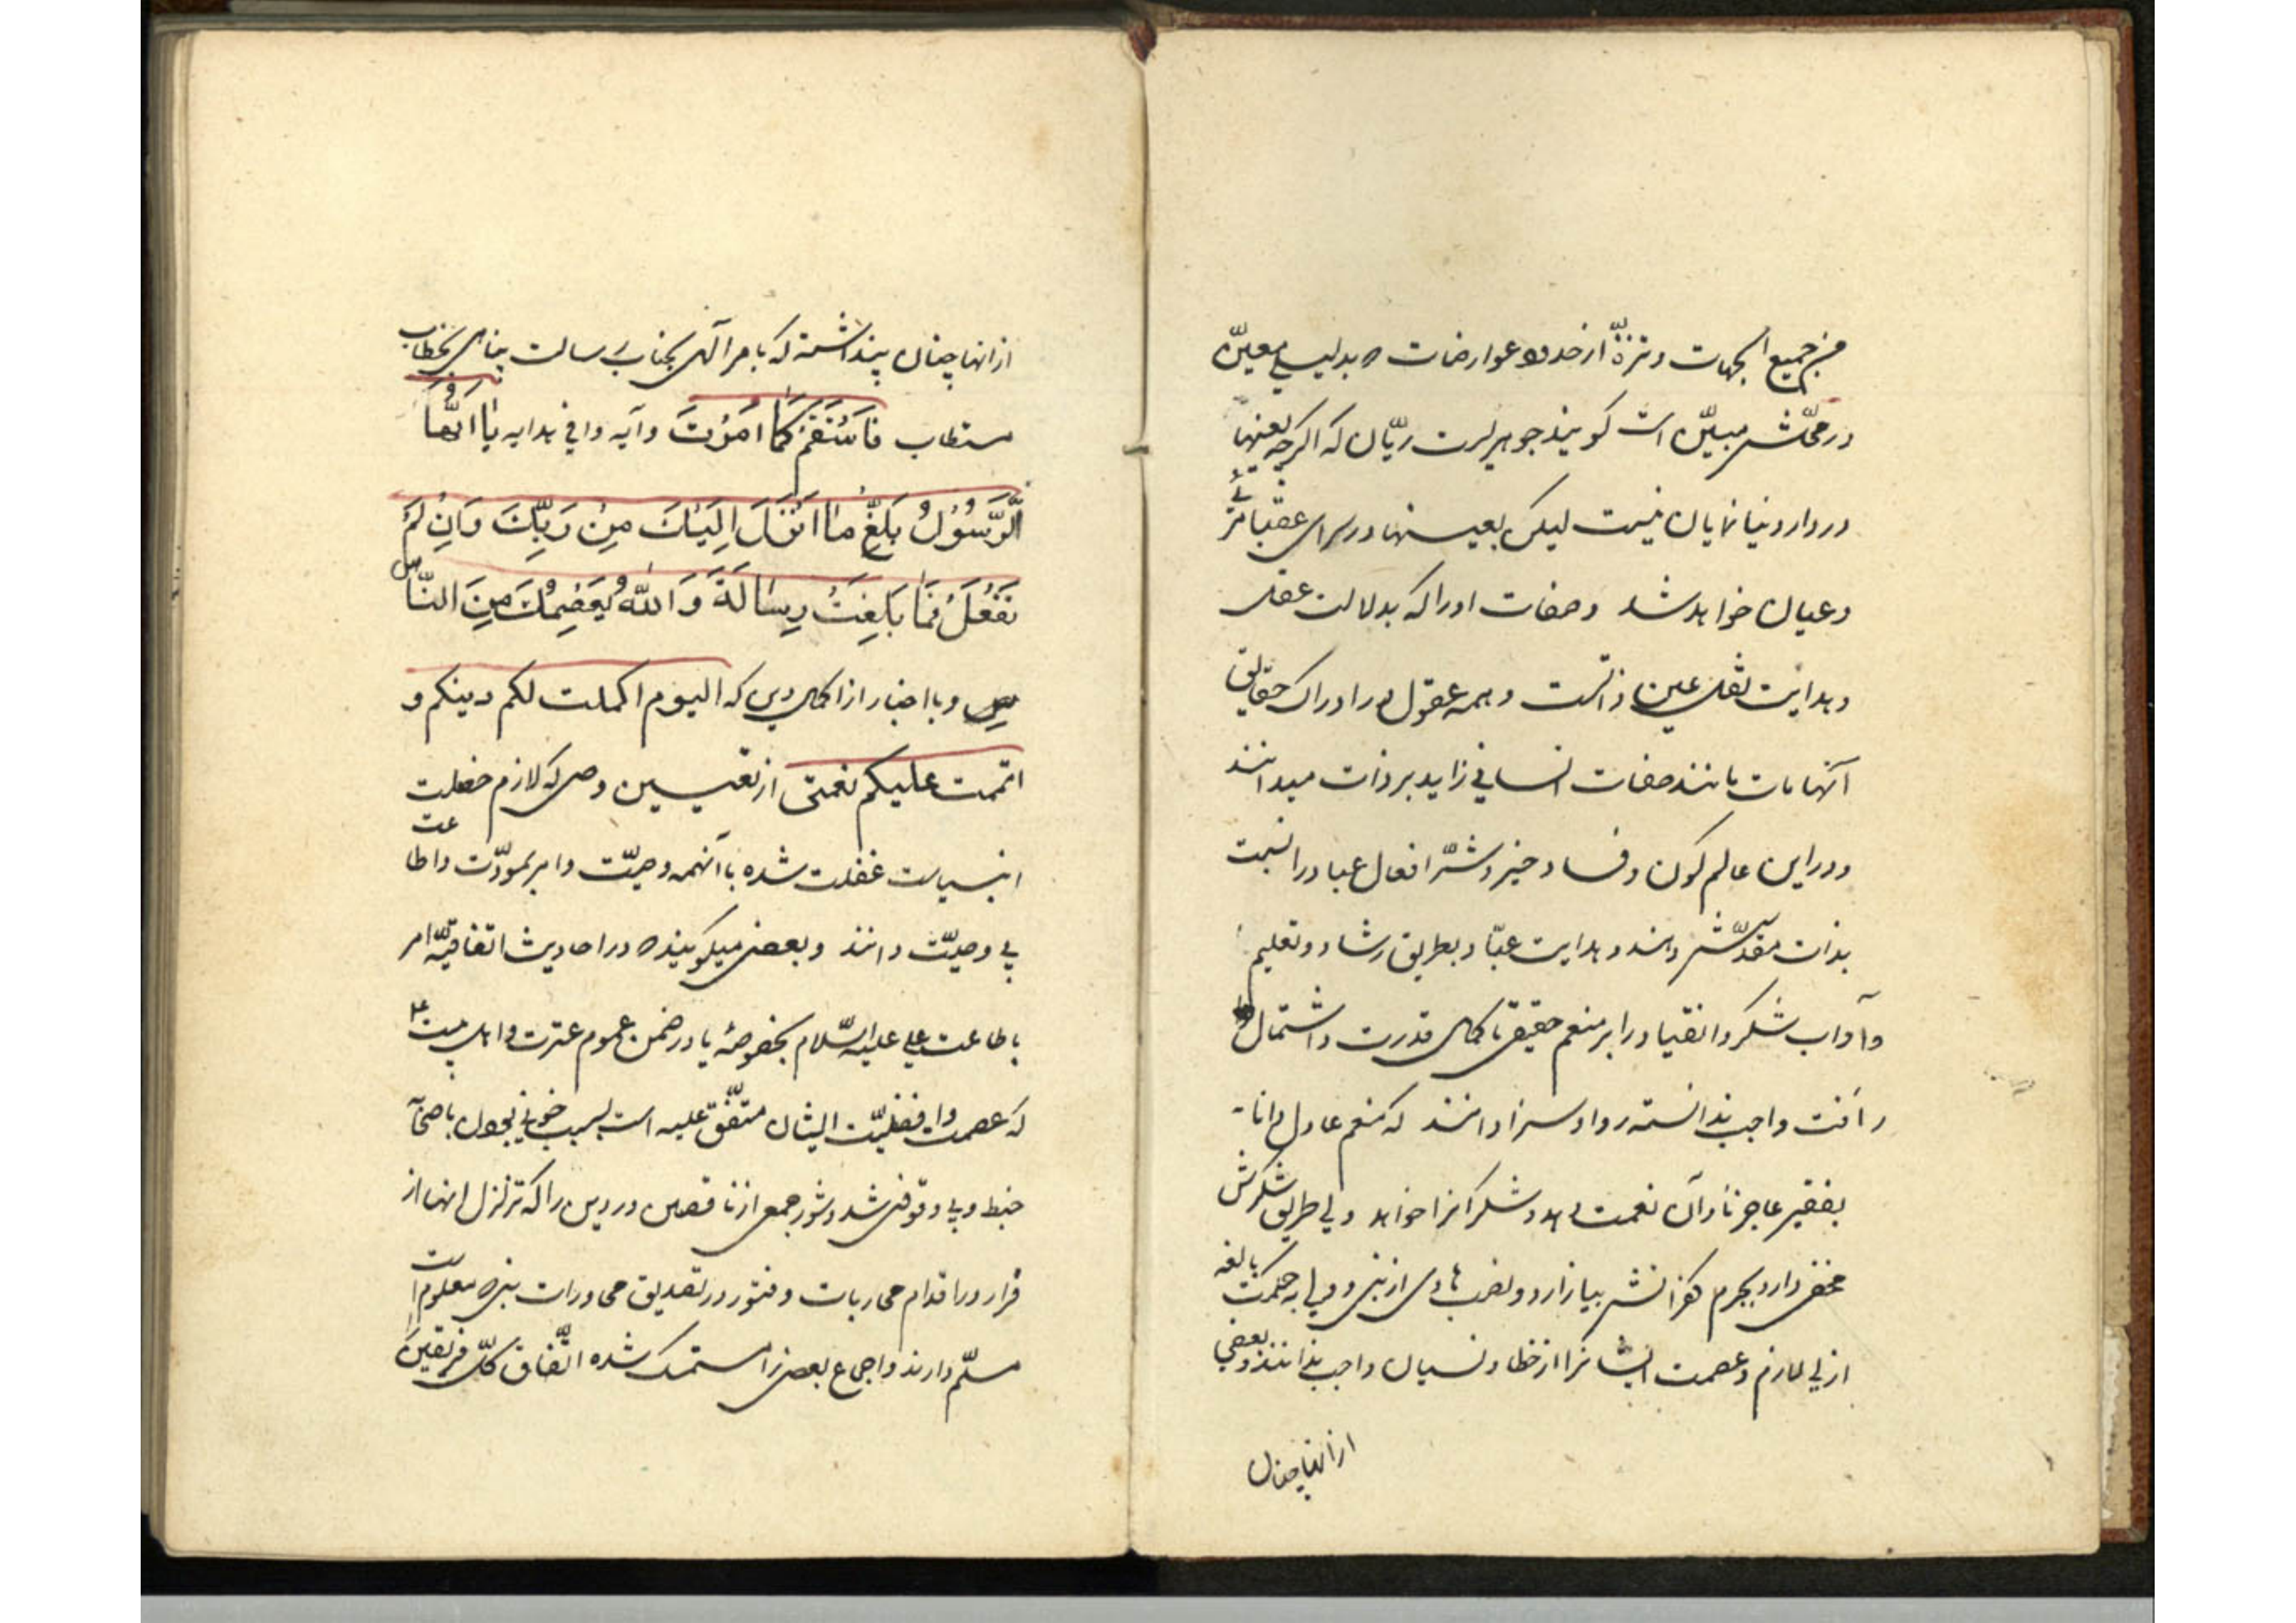 من جمیع الجهات و تنزّه از حدود و عوارضات که بدلیلی معیّن
در محلّش مبیّن است گویند جوهریست ریّان که اگرچه بعینها
در دار دنیا نمایان نیست لیکن بعینها در سرای عقبا مرئی
و عیان خواهد شد و صفات او را که بدلالت عقل
و بدایت نقل عین ذاتست و همه عقول را در ادراک حقایق
آنها مات مانند صفات انسانی زاید بر ذات میدانند
و در این عالم کون و فساد خیر و شرّ افعال عباد را نسبت
بذات مقدّسش دهند و هدایت عبّاد بطریق رشاد و تعلیم
و آداب شکر و انقیاد را بر منعم حقیقی با کمال قدرت و اشتمال
رأفت واجب ندانسته روا و سزا دانند که منعم عادل دانا
بفقیر عاجز نادان نعمت دهد و شکر آنرا خواهد ولی طریق شکرش
مخفی دارد بجرم کفرانش بیازارد و نصب هادی از نبی و ولی بر حکمت بالغه
ازلی لازم و عصمت ایشانرا از خطا و نسیان واجب ندانند و بعضی
از انها چنان
از انها چنان پنداشته که بامر آلهی بجناب رسالت پناهی بخطاب
مستطاب فَاسْتَقِمْ كَمَا اُمِرْتَ و آیه وافی هدایه يَا اَيُّهَا
الرَّسُوُلُ بَلِّغْ مٰا اُنْزِلَ اِلَيْكَ مِنْ رَبِّكَ وَاِنْ لَمْ
تَفْعَلْ فَمَا بَلَّغْتَ رِسَالَتَهُ وَاللّٰهُ يَعْصِمُكَ مِنَ النّاس
و با اخبار از اکمال دین که الیوم اکملت لکم دینکم و
اتممت علیکم نعمتی از تعیین وصی که لازم خصلت
انبیاست غفلت شده با آنهمه وصیّت و امر بمودّت و اطاعت
بی وصیّت دانند و بعضی میگویند که در احادیث اتفاقیّه امر
باطاعت علی علیه السّلام بخصوصه یا در ضمن عموم عترت و اهل بیت ع
که عصمت و افضلیّت ایشان متّفق علیه است بسبب خوبی بحول باضحا
خبط و بی وقوفی شد و شور جمعی از ناقصین در دین را که تزلزل انها از
قرار در اقدام محاربات و فتور در تصدیق محاورات نبی که معلوم است
مسلّم دارند و اجماع بعضی را مستمسک شده اتّفاق کلّ فریقین